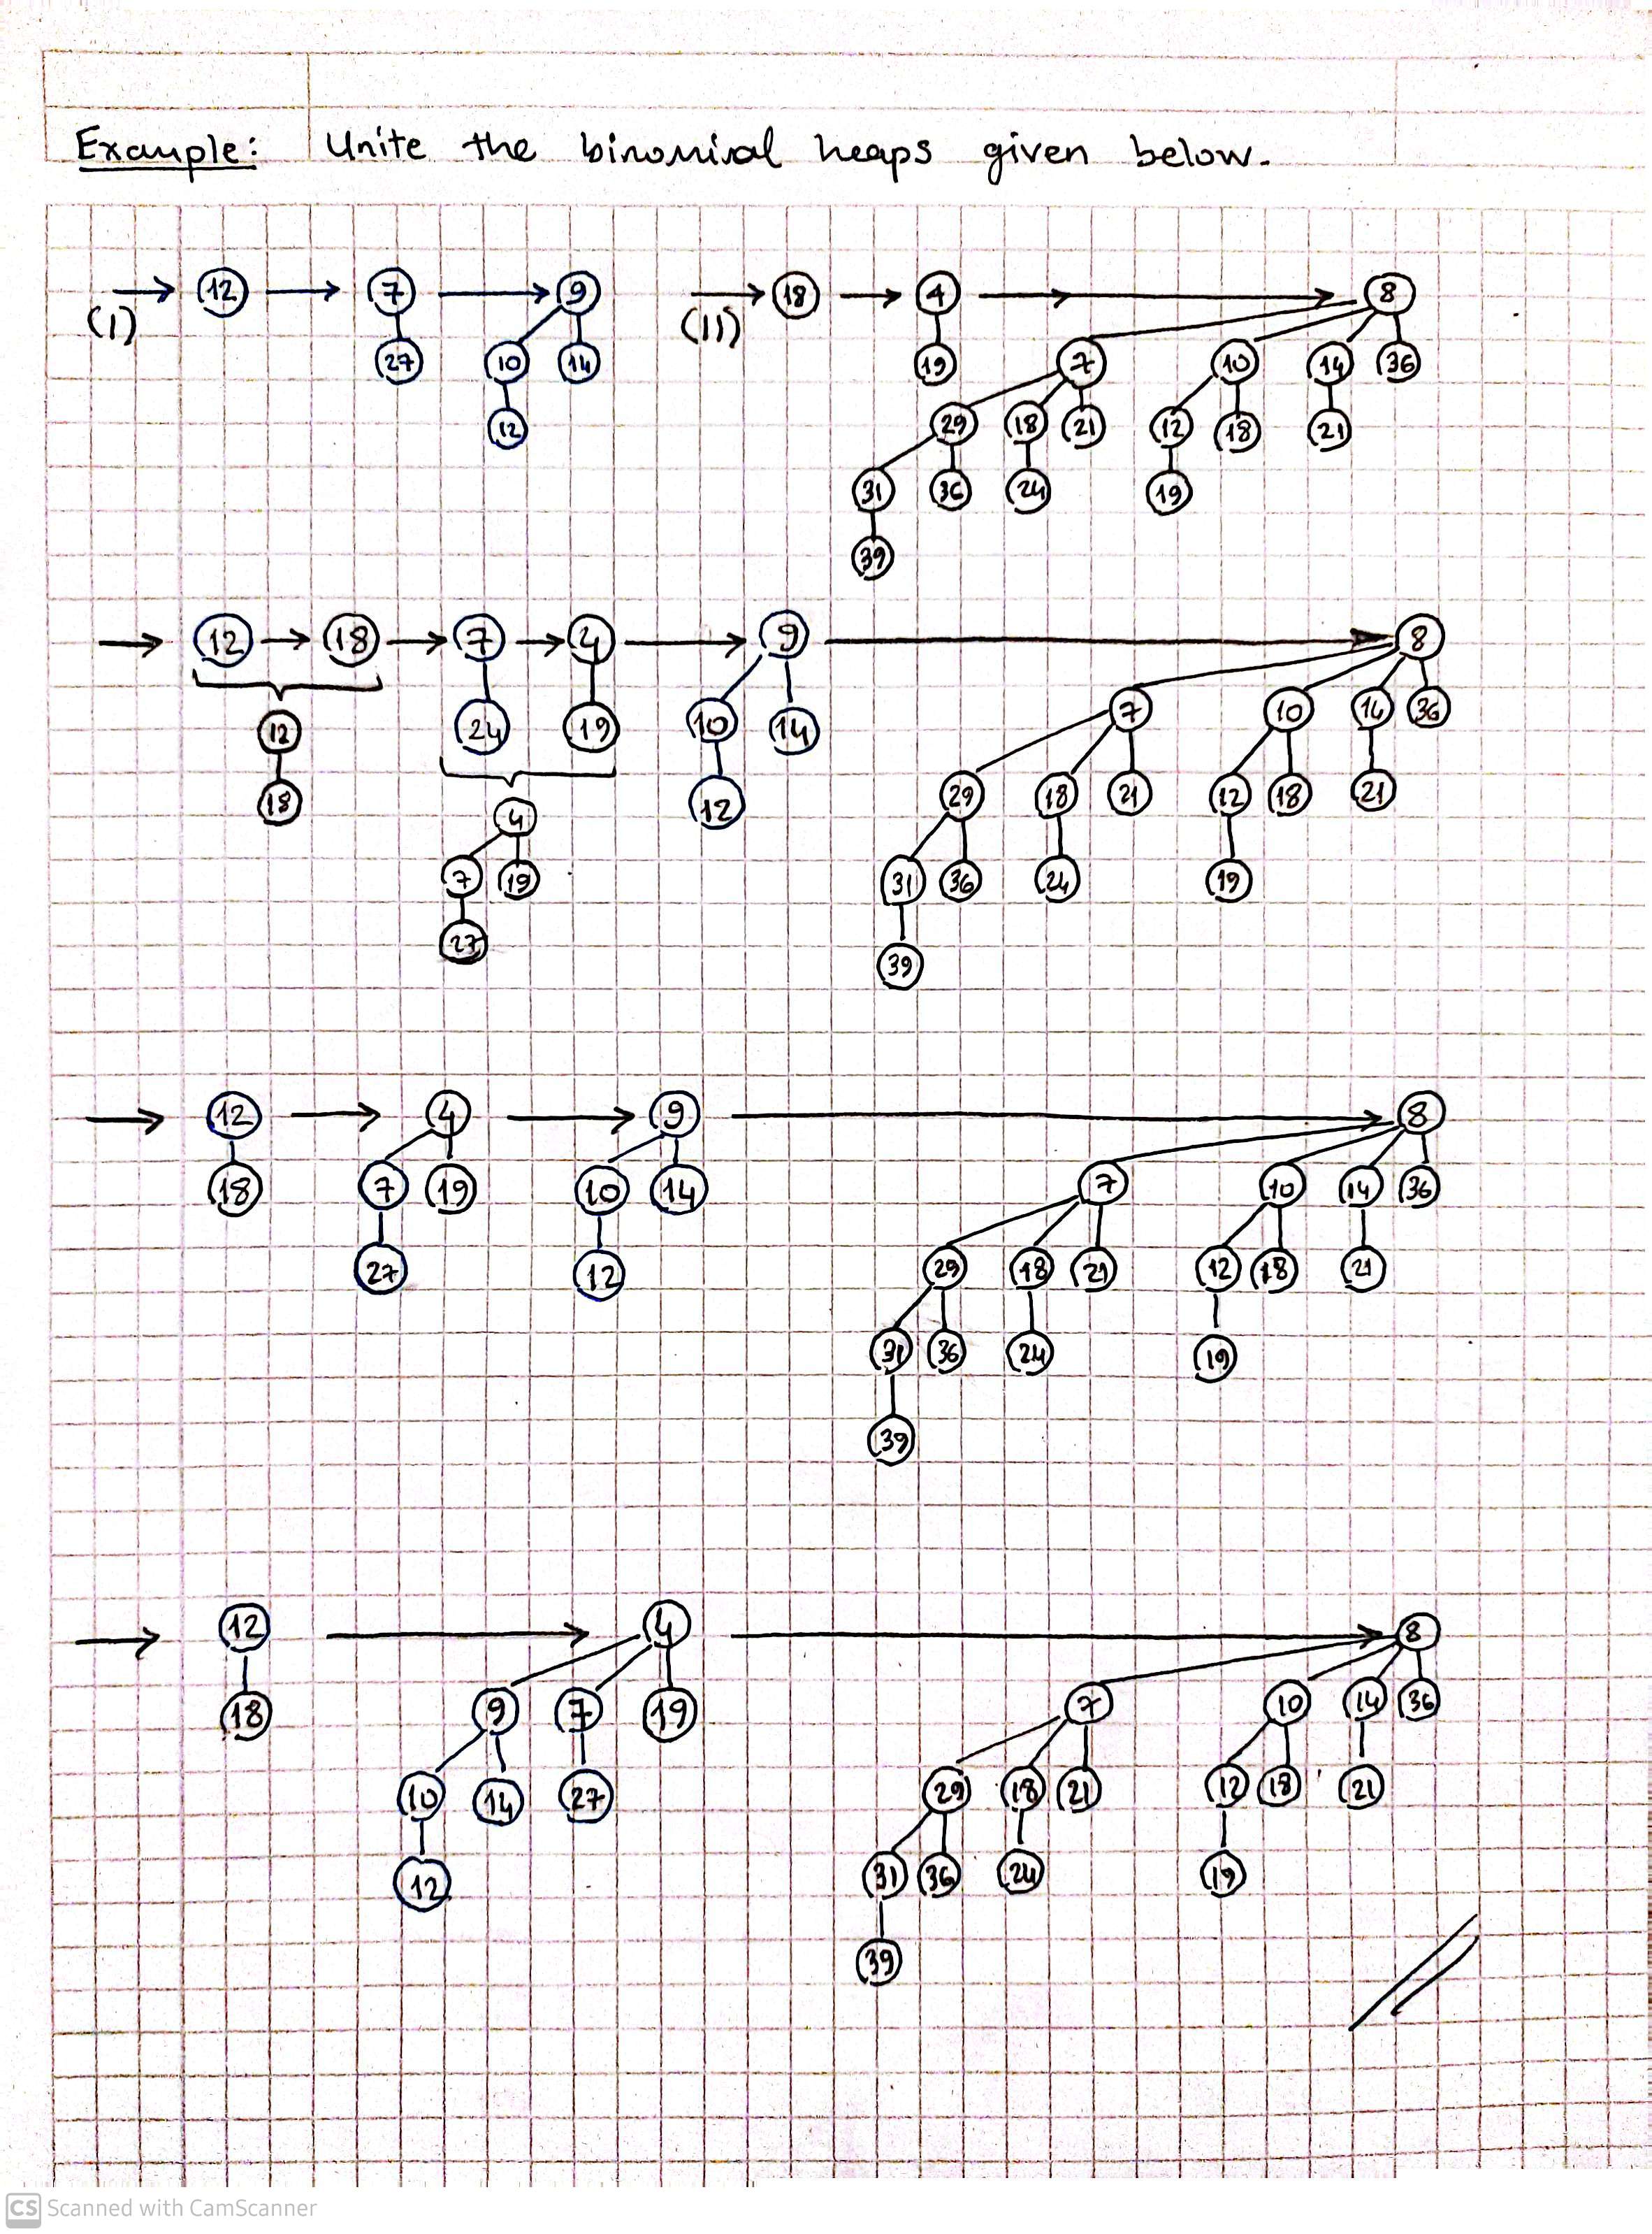 Example: Unite the binomial heaps given below.
(I) 12 7 9 (II) 18 4 8
27 10 14 19 7 10 14 36
12 29 18 21 12 18 21
31 36 24 19
39
12 18 7 4 9 8
24 19 10 14 7 10 14 36
12
18 12 29 18 21 12 18 21
4
7 19 31 36 24 19
27 39
12 4 9 8
18 7 19 10 14 7 10 14 36
27 12 29 18 21 12 18 21
31 36 24 19
39
12 4 8
18 9 7 19 7 10 14 36
10 14 27 29 18 21 12 18 21
12 31 36 24 19
39
CS Scanned with CamScanner